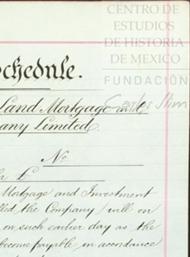 CENTRO DE
ESTUDIOS
DE HISTORIA
DE MEXICO
FUNDACIÓN
Carlos Slim
Schedule.
Land Mortgage and
any Limited.
No
Mortgage and Investment
lled the Company) will on
on such earlier day as the
become payable, in accordance